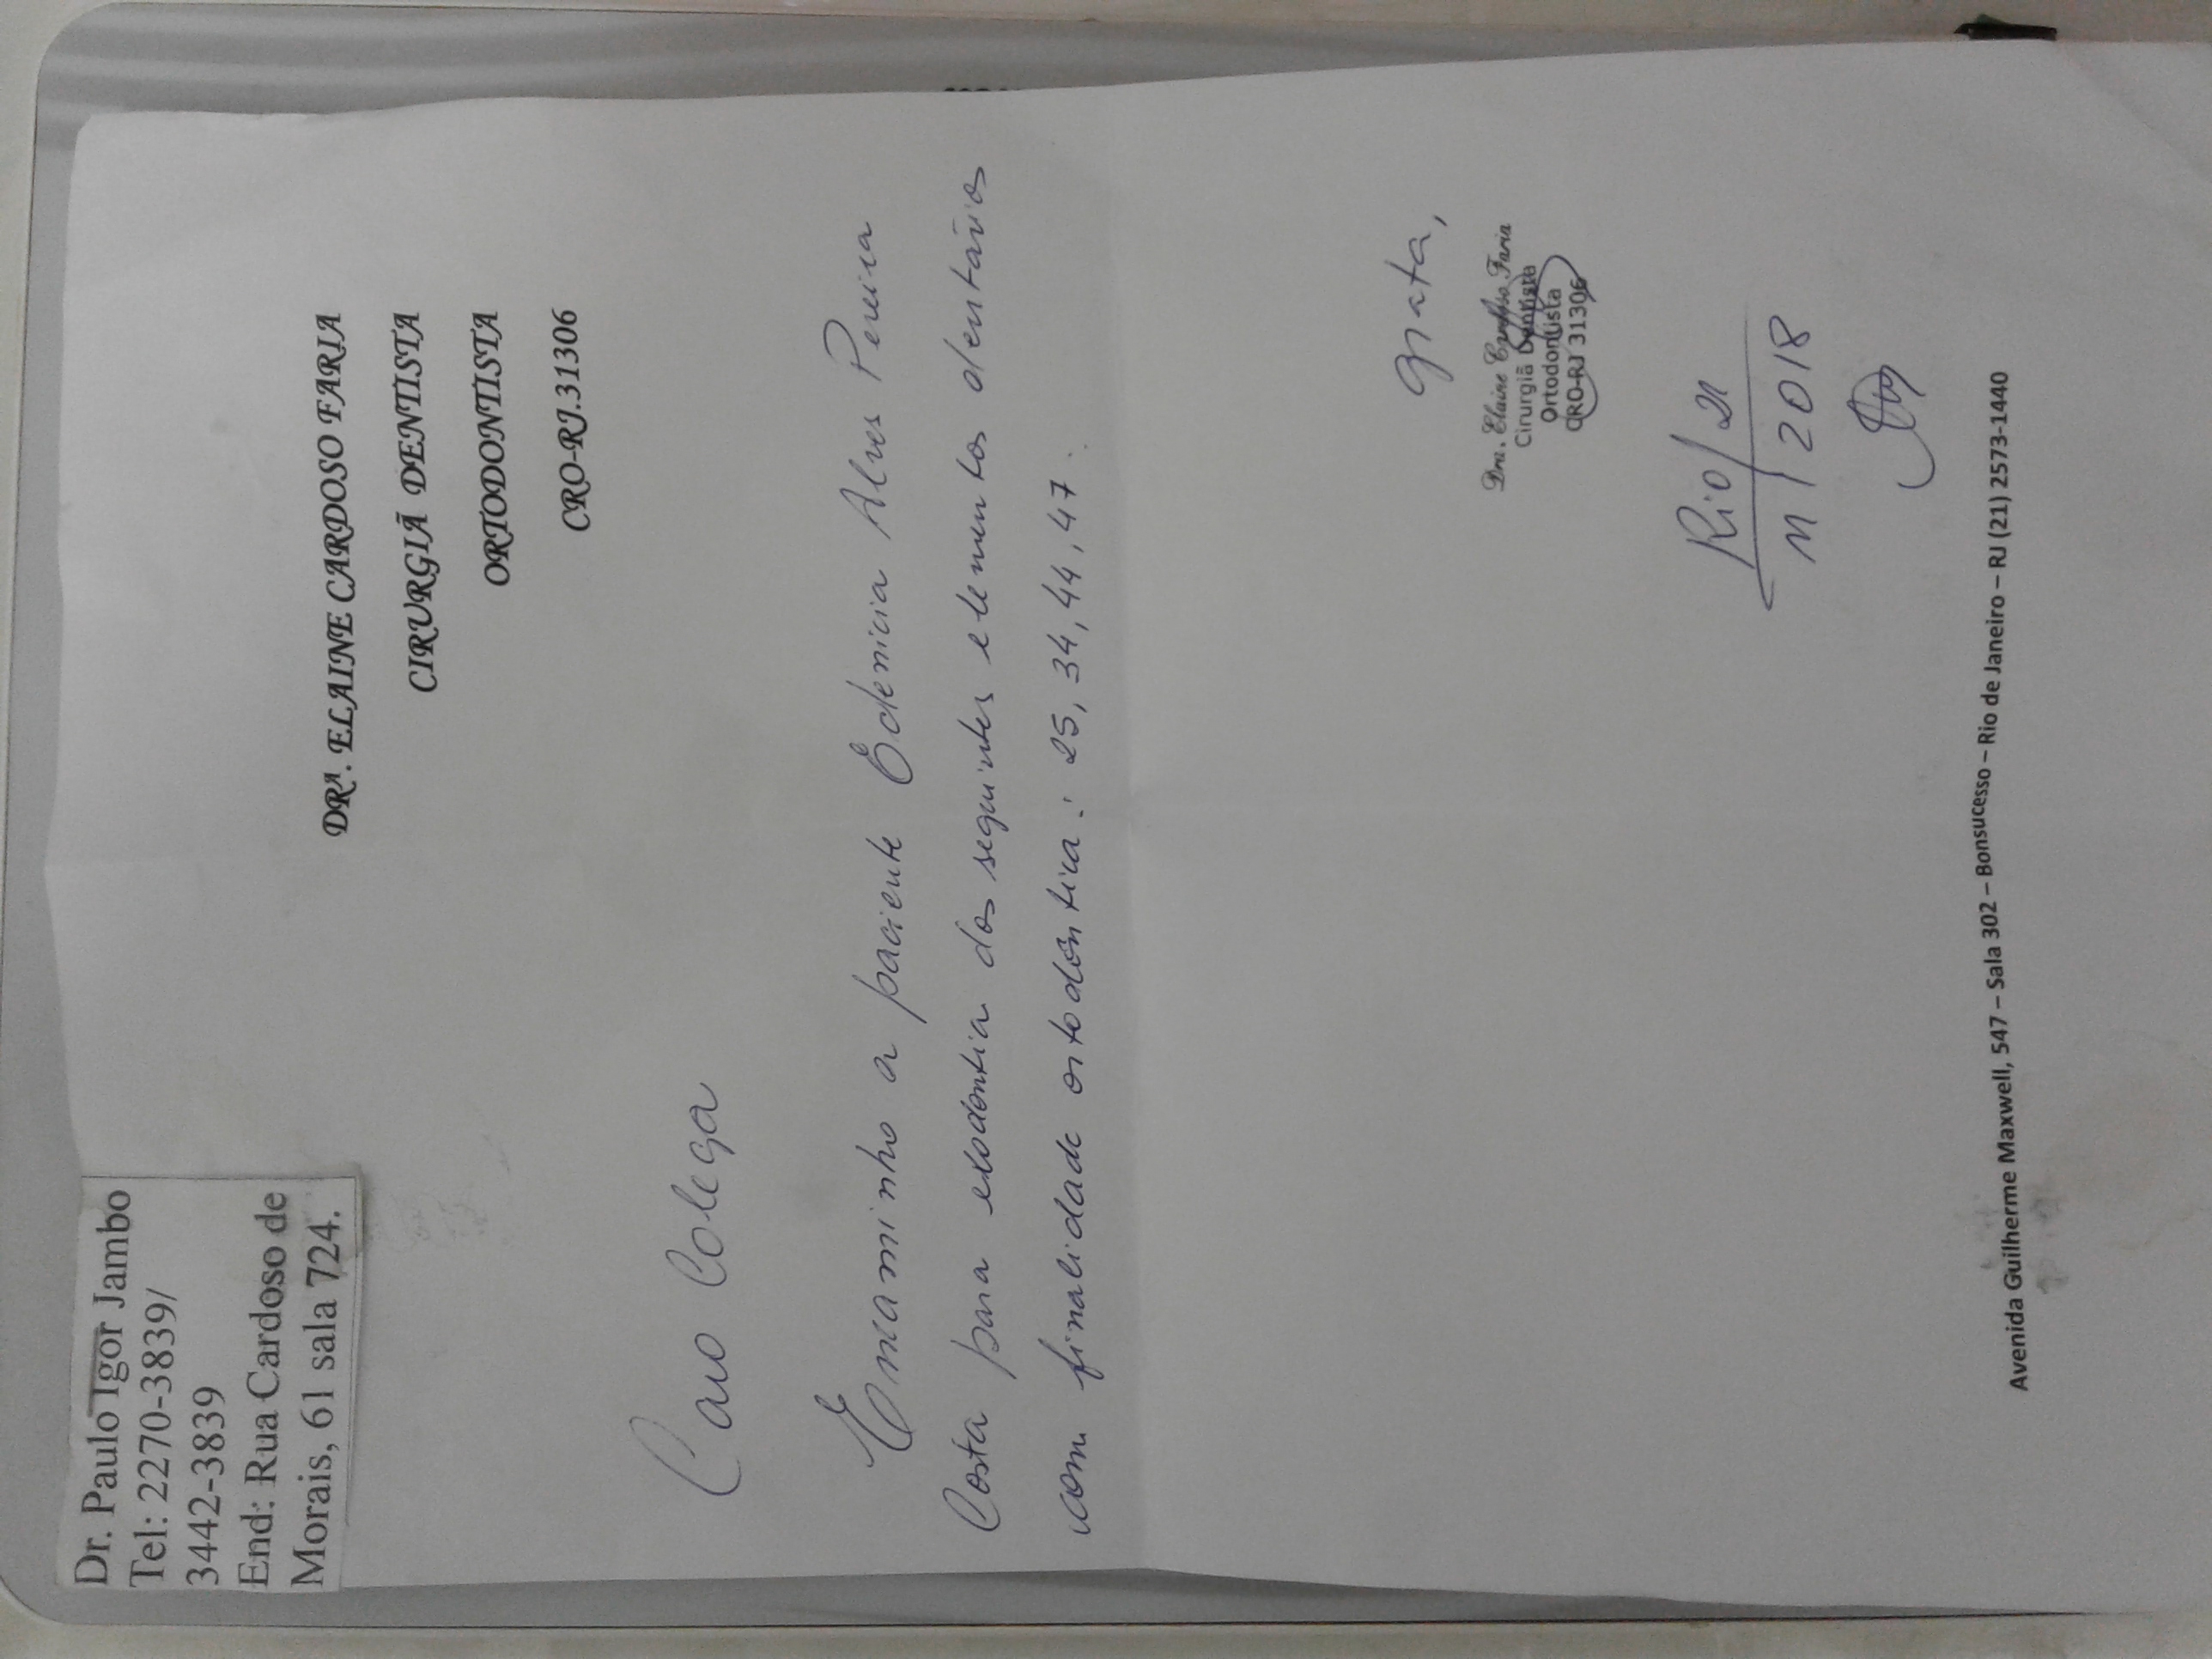 Dr. Paulo Igor Jambo
Tel: 2270-3839/
3442-3839
End: Rua Cardoso de
Morais, 61 sala 724.
DRª. ELAINE CARDOSO FARIA
CIRURGIÃ DENTISTA
ORTODONTISTA
CRO-RJ.31306
Caro Colega
Encaminho a paciente Edenicia Alves Pereira
Costa para exodontia dos seguintes elementos dentários
com finalidade ortodôntica: 25, 34, 44, 47.
Grata,
Dra. Elaine Cardoso Faria
Cirurgiã Dentista
Ortodontista
CRO-RJ 31306
Rio/ 21
11/2018
Avenida Guilherme Maxwell, 547 – Sala 302 – Bonsucesso – Rio de Janeiro – RJ (21) 2573-1440